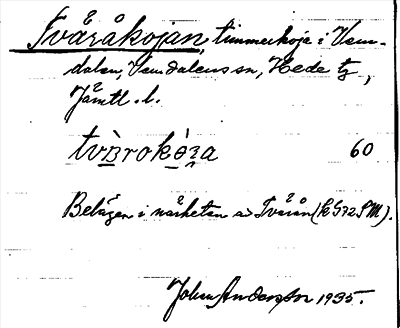 Tvåråkojan, timmerkoja i Vem-
dalen, Vemdalens sn, Hede tg,
Jämtl. l.
60
Belägen i närheten av Tvåran
John Andersson 1935.